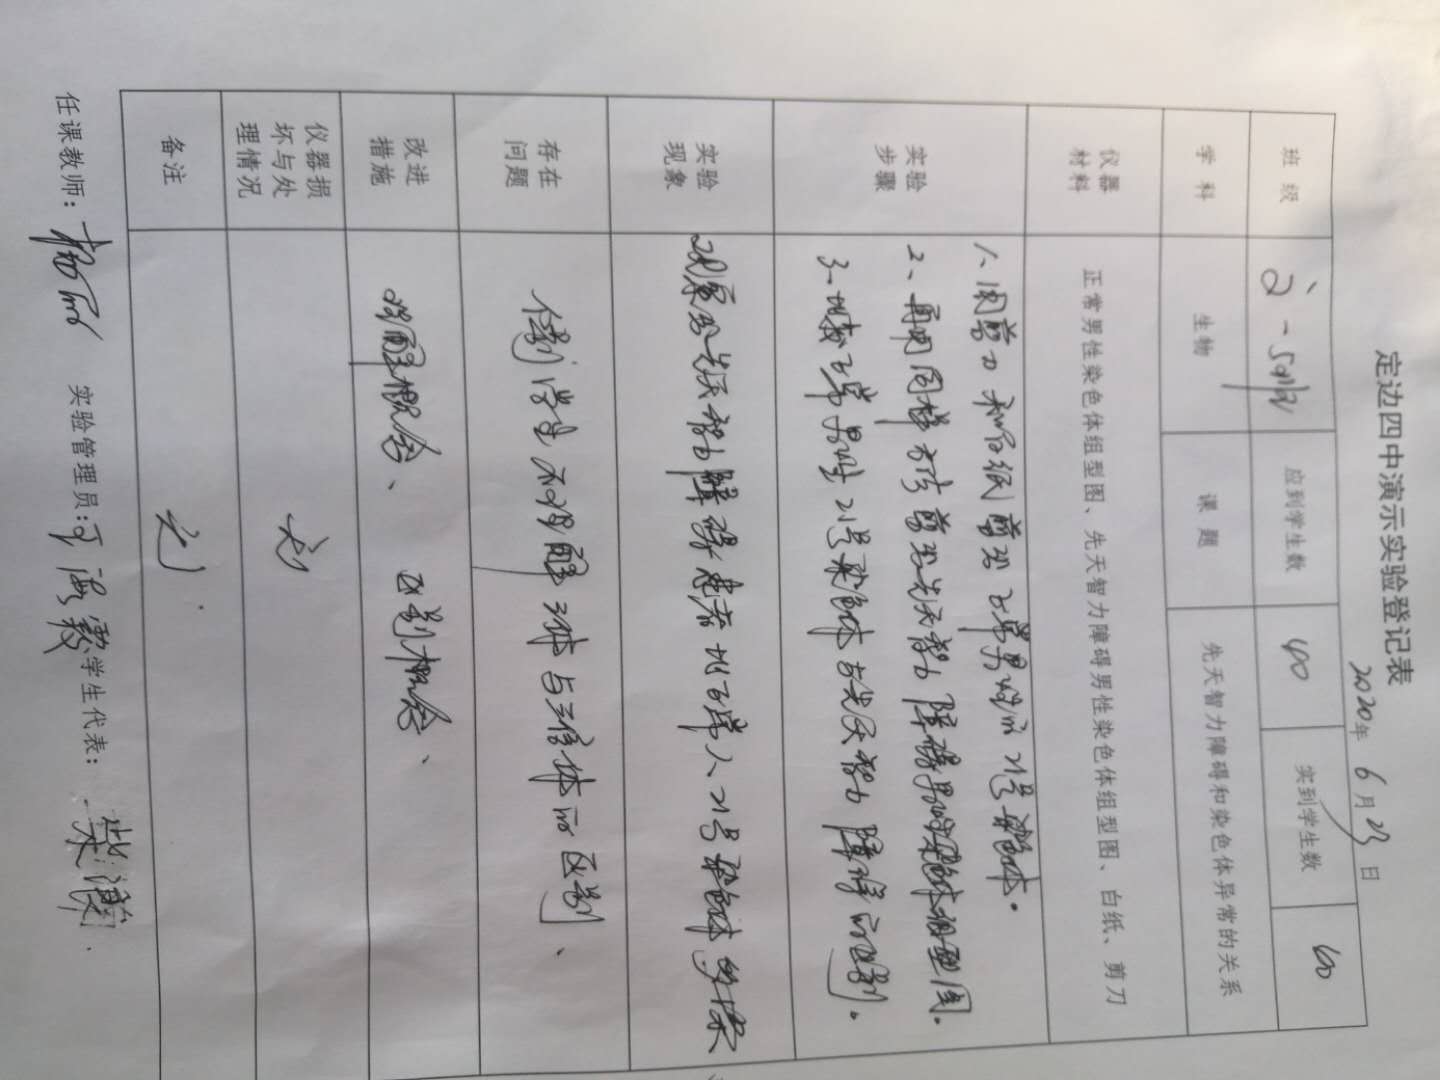 定边四中演示实验登记表
2020年 6月23日
班级 应到学生数 40 实到学生数 40
学科 生物 课题 先天智力障碍和染色体异常的关系
仪器材料 正常男性染色体组型图、先天智力障碍男性染色体组型图、白纸、剪刀
实验步骤
1、用剪刀和白纸剪出正常男性的21号染色体。
2、再用同样方法剪出先天智力障碍男性染色体组型图。
3、比较正常男性21号染色体与先天智力障碍的区别。
实验现象
观察到先天智力障碍患者比正常人21号染色体多1条
存在问题
个别学生不理解三体与三倍体的区别、
改进措施
理解概念、区别概念、
仪器损坏与处理情况 无
备注 无
任课教师: 实验管理员: 学生代表: